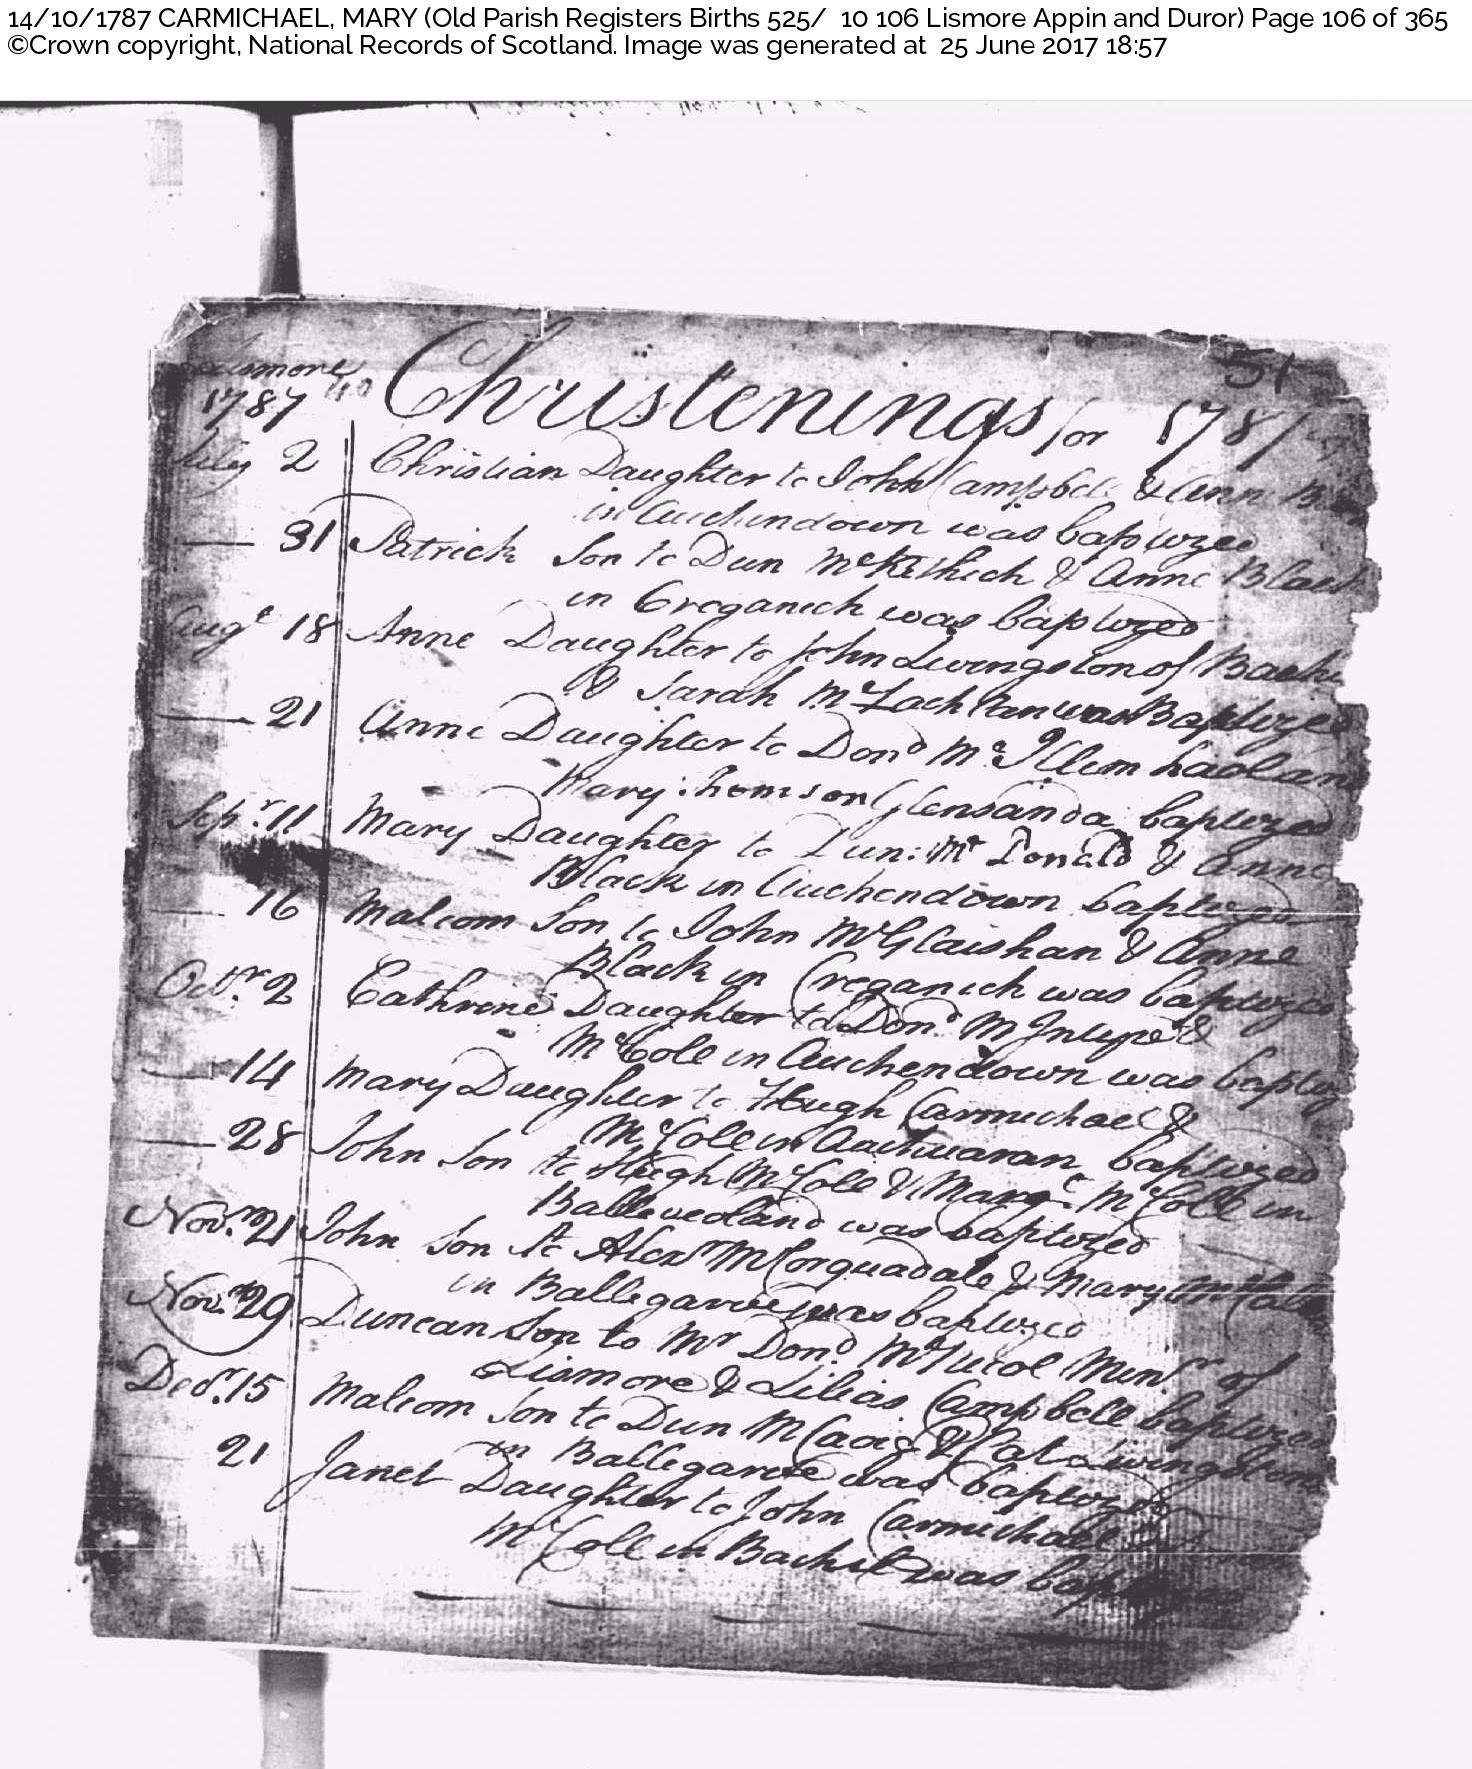 14/10/1787 CARMICHAEL, MARY (Old Parish Registers Births 525/ 10 106 Lismore Appin and Duror) Page 106 of 365
©Crown copyright, National Records of Scotland. Image was generated at 25 June 2017 18:57
Lismore 51
1787 Christenings for 1787
July 2 Christian Daughter to John Campbell & Ann
in Auchindown was baptized
31 Patrick Son to Dun McKethich & Anne Black
in Creganich was baptized
Augt 18 Anne Daughter to John Livingston of
& Sarah McLachlan was Baptized
21 Anne Daughter to Dond
Mary Thomson Glensanda baptized
Sepr 11 Mary Daughter to Dun: Mc Donald & Anne
Black in Auchendown baptized
16 Malcom Son to John McGlaishan & Anne
Black in Creganich was baptized
Octr 2 Cathrine Daughter to Dond McIntyre &
McColl in Auchendown was
14 Mary Daughter to Hugh Carmichael &
McColl in baptized
28 John Son to Hugh McColl & Margt McColl in
was baptized
Novr 21 John Son to Alexr McCorquadale & Mary
in Ballegarve was baptized
Novr 29 Duncan Son to Mr Dond McNicol Minr of
Lismore & Lilias Campbell baptized
Decr 15 Malcom Son to Dun McCaig & Cat Livingstone
in Ballegarve was baptized
21 Janet Daughter to John Carmichael
McColl in was